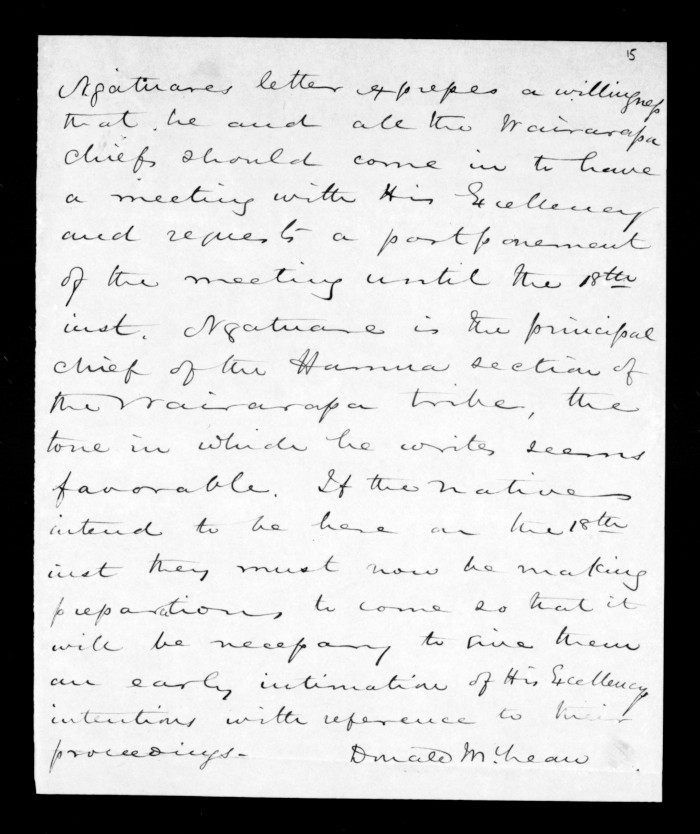 15
Ngatuares letter expresses a willingness
that he and all the Wairarapa
chiefs should come in to have
a meeting with His Excellency
and requests a postponement
of the meeting until the 18th
inst. Ngatuare is the principal
chief of the Hamua section of
the Wairarapa tribe, the
tone in which he writes seems
favorable. If the natives
intend to be here on the 18th
inst they must now be making
preparations to come so that it
will be necessary to give them
an early intimation of His Excellency
intentions with reference to their
proceedings-
Donald McLean